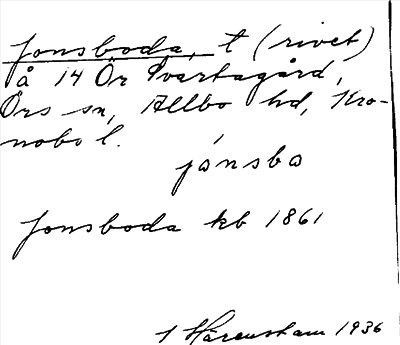 Jonsboda, t (rivet)
å 14 Ör Svartagård,
Örs sn, Allbo hd, Kro-
nobo l.
jónsbo
Jonsboda kb 1861
1936